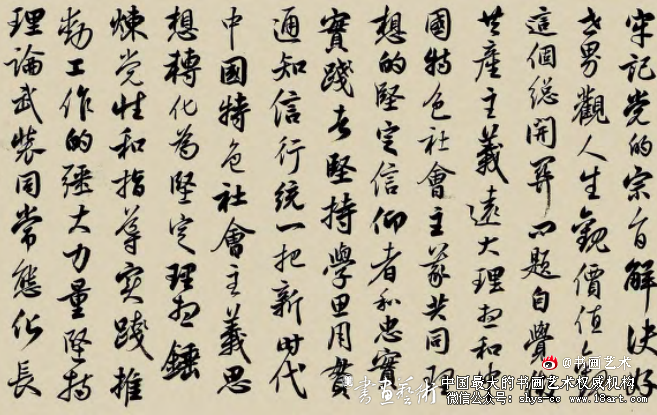 牢記党的宗旨解决好
世界觀人生觀價值
這個總開關问題自覺
共產主義遠大理想和
國特色社會主義共同理
想的堅定信仰者和忠實
實踐者堅持學思用貫
通知信行統一把新时代
中國特色社會主義思
想轉化為堅定理想錘
煉党性和指導实踐推
動工作的强大力量堅持
理論武裝同常態化長
@书画艺术
書畫藝術
中国最大的书画艺术权威机构
微信公众号：shys-cc www.18art.com